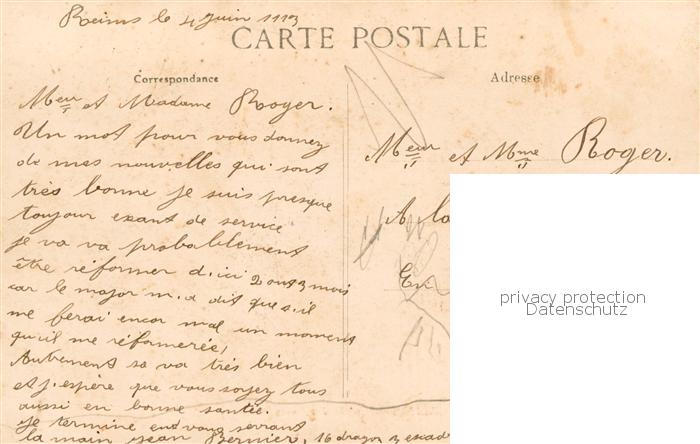 Reims le 4 Juin 1913
CARTE POSTALE
Correspondance
Adresse
Meur et Madame Roger.
Un mot pour vous donnez
de mes nouvelles qui sont
très bonne je suis presque
toujour exant de service
je va va probablement
être réformer d'ici 2 ou 3 mois
car le major m.a dit que s.il
me ferai encor mal un moment
qu'il me réformerée,
Autrement sa va très bien
et j.espère que vous soyez tous
aussi en bonne santée.
je termine end vous serrant
la main Jean Bernier, 16 dragon 3 escad
Meur et Mme Roger.
A la
En
privacy protection
Datenschutz